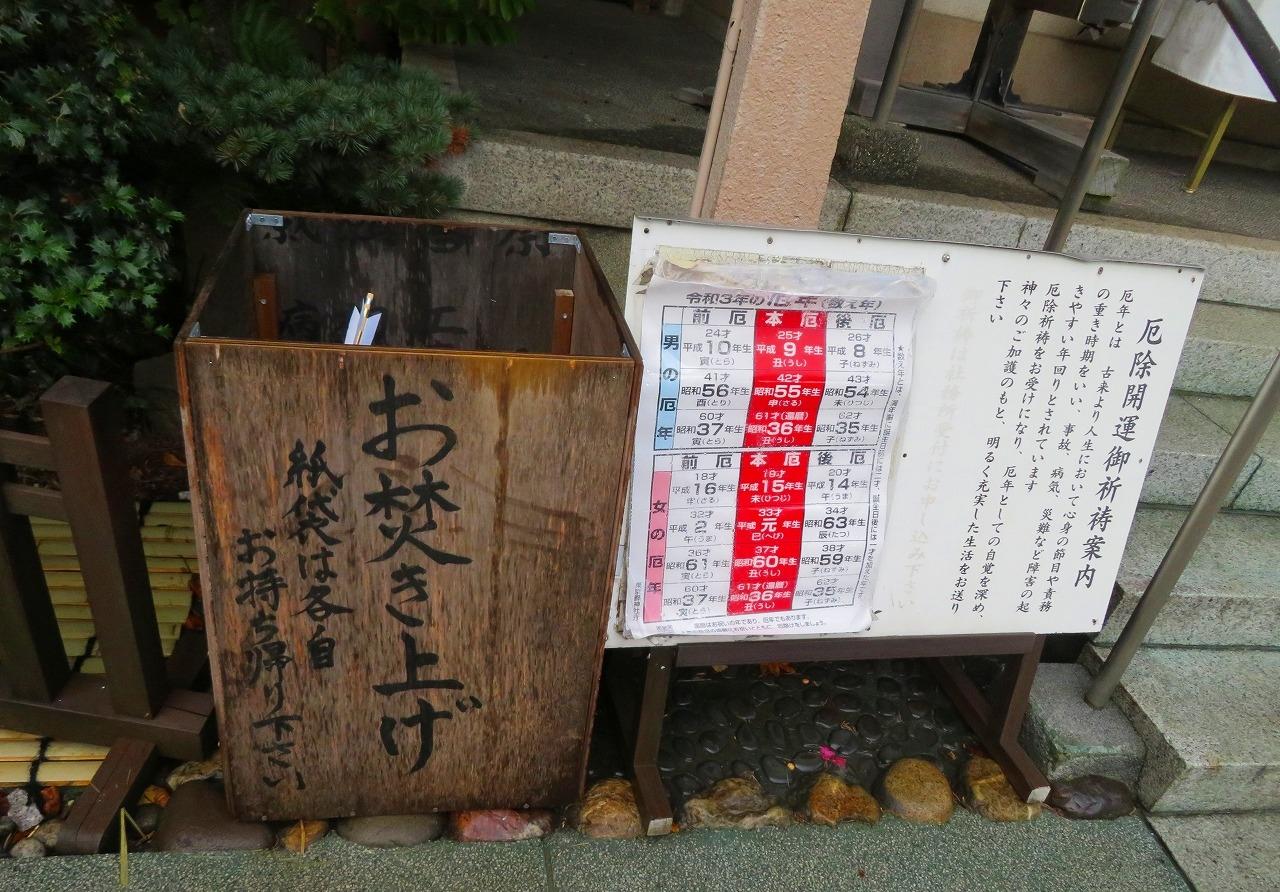 お焚き上げ
紙袋は各自
お持ち帰り下さい
令和3年の厄年(数え年)
男の厄年
前厄 本厄 後厄
24才 25才 26才
平成10年生 平成9年生 平成8年生
寅(とら) 丑(うし) 子(ねずみ)
41才 42才 43才
昭和56年生 昭和55年生 昭和54年生
酉(とり) 申(さる) 未(ひつじ)
60才 61才(還暦) 62才
昭和37年生 昭和36年生 昭和35年生
寅(とら) 丑(うし) 子(ねずみ)
女の厄年
前厄 本厄 後厄
18才 19才 20才
平成16年生 平成15年生 平成14年生
申(さる) 未(ひつじ) 午(うま)
32才 33才 34才
平成2年生 平成元年生 昭和63年生
午(うま) 巳(へび) 辰(たつ)
36才 37才 38才
昭和61年生 昭和60年生 昭和59年生
寅(とら) 丑(うし) 子(ねずみ)
60才 61才(還暦) 62才
昭和37年生 昭和36年生 昭和35年生
寅(とら) 丑(うし) 子(ねずみ)
東京都神社庁
厄除開運御祈祷案内
厄年とは 古来より人生において心身の節目や責務
の重き時期をいい、事故、病気、災難など障害の起
きやすい年回りとされています
厄除祈祷をお受けになり、厄年としての自覚を深め、
神々のご加護のもと、明るく充実した生活をお送り
下さい